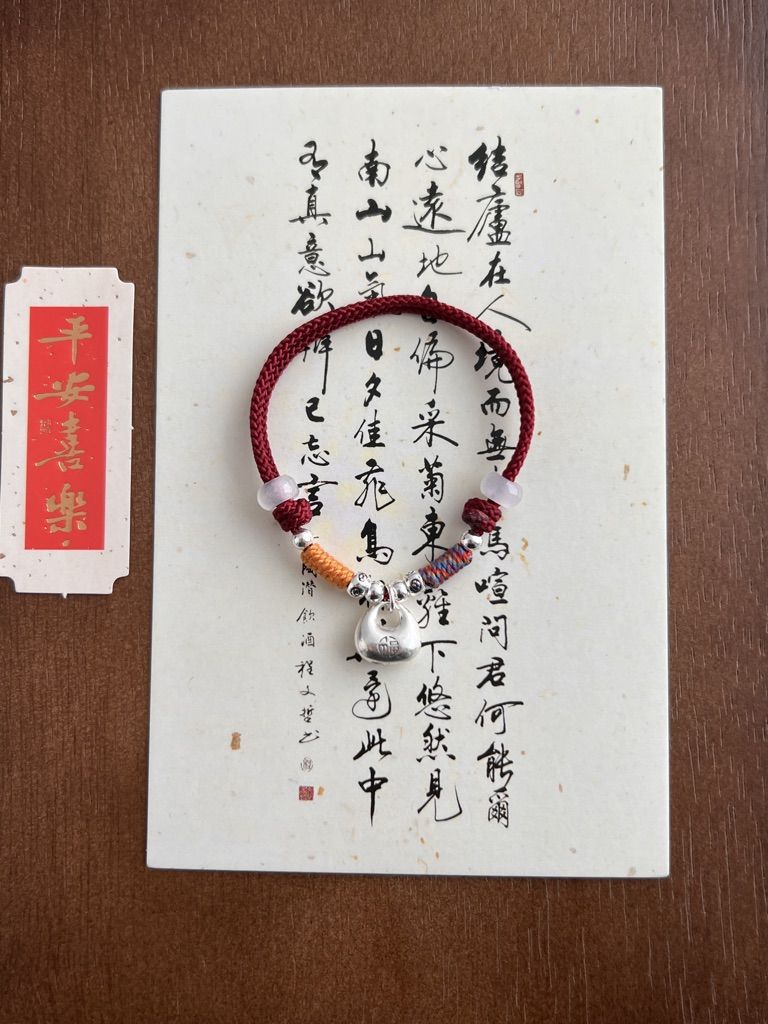 结廬在人境而無馬喧问君何能爾
心遠地自偏采菊東籬下悠然見
南山山氣日夕佳飛鳥還此中
有真意欲辨已忘言
潜飲酒程文哲书
平安喜樂
福